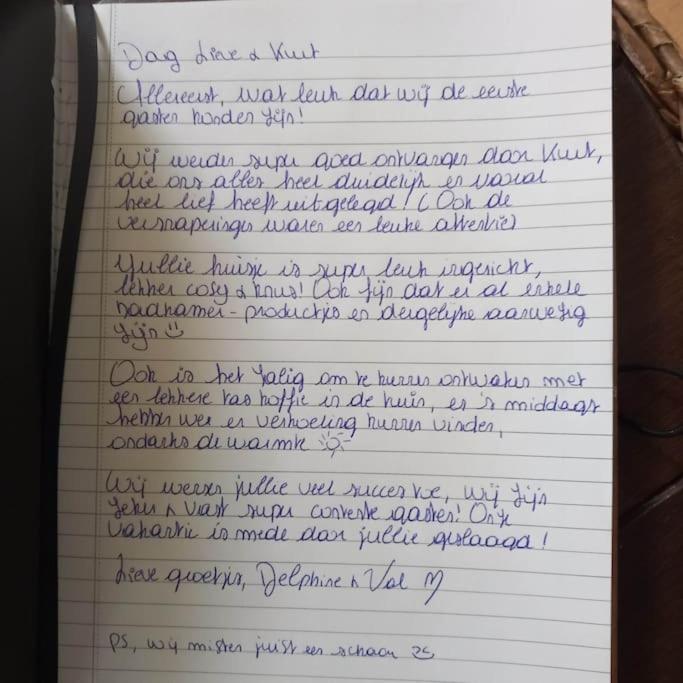 Dag Lieve & Kurt
Allereerst, wat leuk dat wij de eerste
gasten konden zijn!
Wij werden super goed ontvangen door Kurt,
die ons alles heel duidelijk en vooral
heel lief heeft uitgelegd! (Ook de
versnaperingen waren een leuke attentie)
Jullie huisje is super leuk ingericht,
lekker cosy & knus! Ook fijn dat er al enkele
badkamer-productjes en dergelijke aanwezig
zijn ☺
Ook is het zalig om te kunnen ontwaken met
een lekkere tas koffie in de tuin, en 's middags
hebben we er verkoeling kunnen vinden,
ondanks de warmte ☀
Wij wensen jullie veel succes toe, wij zijn
zeker & vast super contente gasten! Onze
vakantie is mede door jullie geslaagd!
Lieve groetjes, Delphine &
PS, wij misten juist een schaar ☺